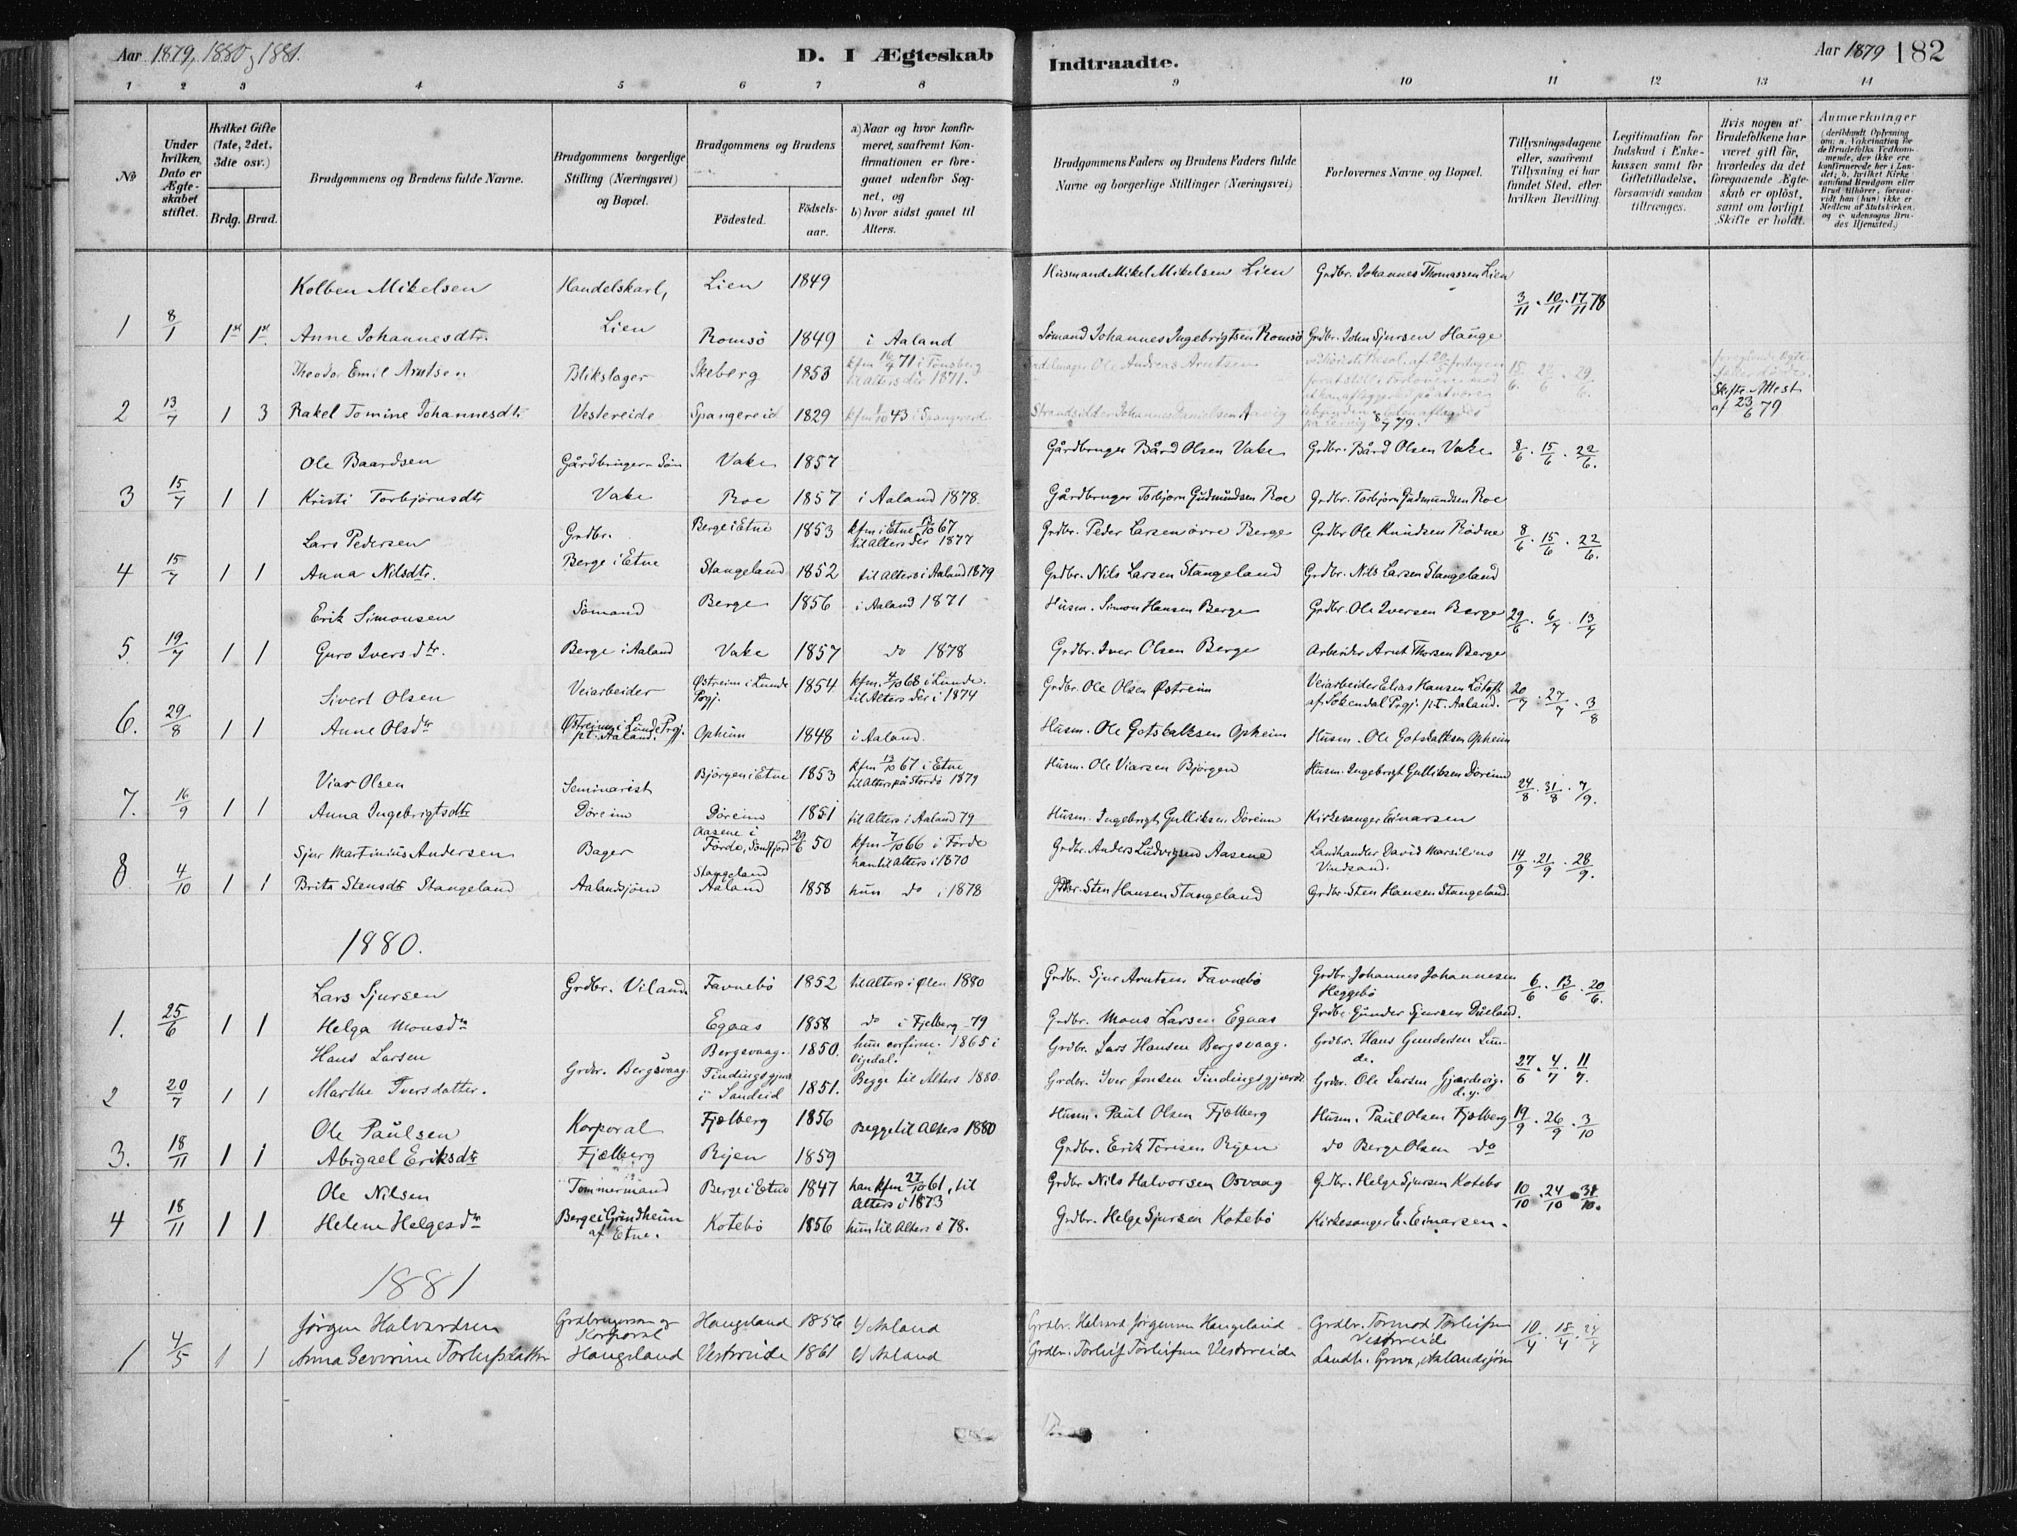 Aar 1879, 1880 og 1881.
D. I Ægteskab
Indtraadte.
Aar 1879 182
1 2 3 4 5 6 7 8 9 10 11 12 13 14
No
Under hvilken Dato er Ægteskabet stiftet.
Hvilket Gifte (1ste, 2det, 3die osv.)
Brdg. Brud.
Brudgommens og Brudens fulde Navne.
Brudgommens borgerlige Stilling (Næringsvei) og Bopæl.
Brudgommens og Brudens
Fødested. Fødselsaar.
a) Naar og hvor konfirmeret, saafremt Konfirmationen er foregaaet udenfor Sognet, og
b) hvor sidst gaaet til Alters.
Brudgommens Faders og Brudens Faders fulde Navne og borgerlige Stillinger (Næringsvei)
Forlovernes Navne og Bopæl.
Tillysningsdagene eller, saafremt Tillysning ei har fundet Sted, efter hvilken Bevilling.
Legitimation for Indskud i Enkekassen samt for Giftetilladelse, forsaavidt saadan tiltrænges.
Hvis nogen af Brudefolkene har været gift før, hvorledes da det foregaaende Ægteskab er opløst, samt om lovligt Skifte er holdt.
Anmærkninger
(deriblandt Oplysning om: a. Vakcination for de Brudefolks Vedkommende, der ikke ere konfirmerede her i Landet; b. hvilket Kirkesamfund Brudgom eller Brud tilhører, forsaavidt han (hun) ikke er Medlem af Statskirken, og c. udensogns Brudes Hjemsted.)
Kolben Mikelsen Handelskarl, Lien 1849 Husmand Mikel Mikelsen Lien Grdbr. Johannes Thomassen Lien
1 8/1 1st 1st. Anne Johannesdtr. Lien Romsö 1849 i Aaland Sømand Johannes Ingebrigtsen Romsö Grdbr. John Sjursen Hauge 3/11 . 10/11 . 17/11 78
Theodor Emil Arntsen Blikslager Skeberg 1853 kfm 16/4 71 i Tönsberg til alters der 1871. Ole Andreas Arntsen 15/6 . 22/6 . 29/6
2 13/7 1 3 Rakel Tomine Johannesdtr Vestereide Spangereid 1829 kfm 1/10 43 i Spangereid Strandsidder Johannes Danielsen 8/7 79. Skifte Attest af 23/6 79
Ole Baardsen Gårdbrugers Søn Vake 1857 Gårdbruger Bård Olsen Vake Grdbr. Bård Olsen Vake 8/6 . 15/6 . 22/6.
3 15/7 1 1 Kristi Torbjørnsdtr Vake Roe 1857 i Aaland 1878. Gårdbruger Torbjorn Gudmundsen Roe Grdbr. Torbjørn Gudmundsen Roe
Lars Pedersen Grdbr. Berge i Etne 1853 kfm i Etne 13/10 67 til alters der 1877 Grdbr. Peder Larsen øvre Berge Grdbr Ole Knudsen Rödne 8/6 . 15/6 . 22/6.
4 15/7 1 1 Anna Nilsdtr. Berge i Etne Stangeland 1852 til alters i Aaland 1879 Grdbr. Nils Larsen Stangeland Grdbr. Nils Larsen Stangeland
Erik Simonsen Sømand Berge 1856 i Aaland 1871 Husm. Simon Hansen Berge Grdbr. Ole Iversen Berge 29/6 . 6/7 . 13/7
5. 19/7 1 1 Guro Iversdtr. Berge i Aaland Vake 1857 do 1878 Grdbr. Iver Olsen Berge Arbeider Arnt Thorsen Berge
Sivert Olsen Veiarbeider Østreim i Lunde Prgj. 1854 kfm. 4/10 68 i Lunde. til Alters der i 1874 Grdbr. Ole Olsen Østreim Veiarbeider Elias Hansen Lötoft af Sokendal Prgj. p.t. Aaland. 20/7 . 27/7 . 3/8
6. 29/8 1 1 Anne Olsdtr Østreim i Lunde Prgj. pt. Aaland. Opheim 1848 i Aaland. Husm. Ole Gotskalksen Opheim Husm. Ole Gotskalksen Opheim
Viar Olsen Seminarist Bjørgen i Etne 1853 kfm 13/10 67 i Etne til alters på Stordö 1879 Husm. Ole Viarsen Bjørgen Husm. Ingebrigt Gulliksen Döreim 24/8 . 31/8 . 7/9.
7. 16/9 1 1 Anna Ingebrigtsdtr Döreim Döreim 1851 til alters i Aaland 79 Husm. Ingebrigt Gulliksen Döreim Kirkesanger Einarsen
Sjur Martinius Andersen Bager Aasene i Förde, Søndfjord 29/6 50 kfm 7/10 66 i Förde han til alters i 1870 Grdbr. Anders Ludvigsen Aasene Landhandler David Marsilius Vindsand. 14/9 . 21/9 . 28/9.
8. 4/10 1 1 Brita Stensdtr Stangeland Aalandsjøen Stangeland Aaland 1858 hun do i 1878 Grdbr. Sten Hansen Stangeland Grdbr. Sten Hansen Stangeland.
1880.
Lars Sjursen Grdbr. Viland. Favnebö 1852 til Alters i Ølen 1880 Grdbr. Sjur Arntsen Favnebö Grdbr. Johannes Johannesen Heggebö 6/6 . 13/6 . 20/6.
1. 25/6 1 1 Helga Monsdtr Egaas 1858 do i Fjelberg 79 Grdbr. Mons Larsen Egaas Grdbr Gunder Sjursen Dueland.
Hans Larsen Grdbr. Bergsvaag Bergsvaag. 1850. hun confirm. 1865 i Vigedal. Grdbr. Lars Hansen Bergsvaag. Grdbr. Hans Gundersen Lunde. 27/6 . 4/7 . 11/7.
2 20/7 1 1 Marthe Iversdatter. Tindingsgjærd i Sandeid 1851. Begge til Alters 1880. Grdbr. Iver Jonsen Tindingsgjærde Grdbr. Ole Larsen Gjærdevig d.y.
Ole Paulsen Korporal Fjælberg 1856 Begge til Alters 1880 Husm. Paul Olsen Fjælberg Husm. Paul Olsen Fjælberg 19/9 . 26/9 . 3/10
3. 18/11 1 1 Abigael Eriksdtr Fjælberg Rijen 1859 Grdbr. Erik Torisen Rijen do Berge Olsen do
Ole Nilsen Tømmermand Berge i Etne 1847 han kfm 27/10 61, til Alters i 1873 Grdbr Nils Halvorsen Osvaag Grdbr. Helge Sjursen Kotebö 10/10 . 24/10 . 31/10.
4 18/11 1 1 Helene Helgesdtr Berge i Grindheim af Etne. Kotebö 1856 hun til Alters i 78. Grdbr. Helge Sjursen Kotebö Kirkesanger E. Einarsen.
1881
Jørgen Halvardsen Grdbrugersøn og Korporal Haugeland 1856 i Aaland Grdbr. Halvard Jørgensen Haugeland Grdbr. Tormod Torleifsen Vestreide 10/4 . 18/4 . 24/4
1 4/5 1 1 Anna Severine Torleifsdatter Haugeland Vestreide 1861 i Aaland Grdbr. Torleif Torleifsen Vestreide Landh. Greve, Aalandsjøen